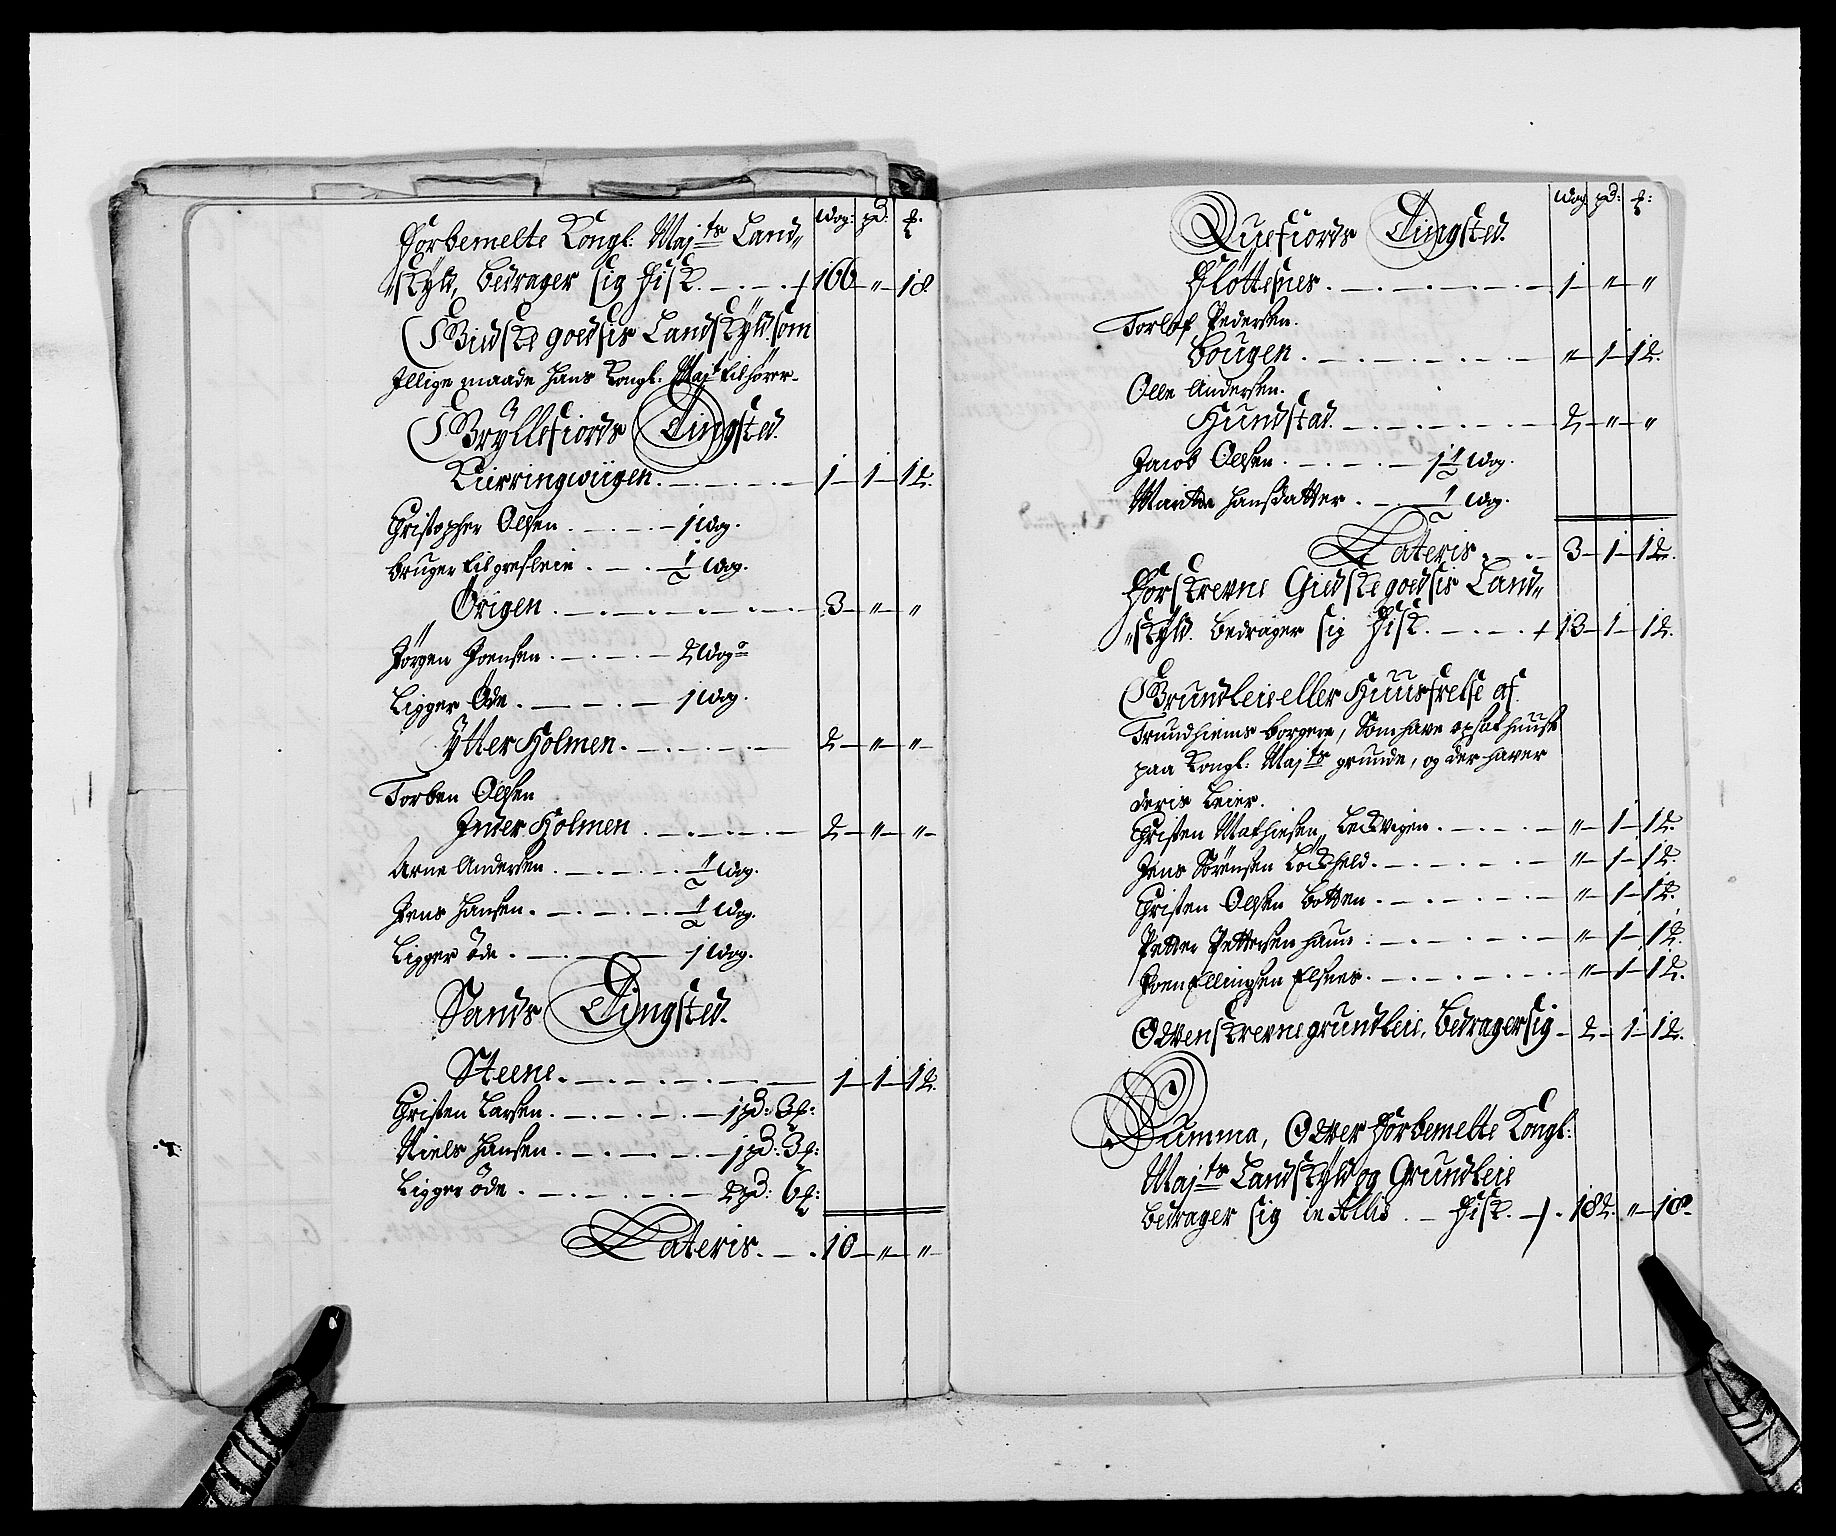 wog: pd: ℔:
Forbemelte Kongl: Maj:ts Land„
„skyld, bedrager sig Fisk. 166 „ 18
Gidske goedsis Landskyld som
Jllige maade hans Kongl: Maj:t tilhører.
Gryllefiords Tingsted.
Kierringwiigen. 1 1 12.
Christopher Olsen. 1 wog.
bruger til gresleie. ½ wog.
Örigen. 3 „ „
Jörgen Joensen. 2 wog:
Ligger Öde. 1 wog.
Ytter Holmen. 2 „ „
Torben Olsen
Jnder Holmen. 2 „ „
Arne Andersen. ½ wog.
Jens Hansen. ½ wog.
Ligger öde. 1 wog.
Sands Tingsted.
Steene. 1 1 12.
Christen Larsen. 1 pd: 3 ℔:
Niels Hansen. 1 pd: 3 ℔:
Ligger öde. 2 pd: 6 ℔:
Lateris. 10 „ „
wog pd: ℔:
Quefiords Tingsted.
Fløttesnes. 1 „ „
Torlof Pedersen.
Bougen. „ 1 12.
Olle Andersen.
Hundstad. 2 „ „
Jacob Olsen. 1½ wog.
Maritte Hansdatter. ½ wog.
Lateris. 3 1 12.
Forskrevne Giedske goedsis Land„
„skyld. bedrager sig Fisk. 13 1 12.
Grundleie eller Huusfrelse af
Trundhiems borgere, som have opsat huuse
paa Kongl: Maj:ts grunde, og der haver
deris Leier.
Christen Mathiesen, Ledwigen. „ 1 12.
Jens Sörensen Lödsheld. „ 1 12.
Christen Olsen Botten. „ 1 12.
Petter Pettersen haun: „ 1 12.
Joen Ellingsen Elsnes. „ 1 12.
Ofvenskrevne grundleie, bedrager sig 2 1 12.
Summa, Ofver Forbemelte Kongl:
Maj:ts Landskyld og Grundleie
bedrager sig in Alles Fisk. 182. „ 18